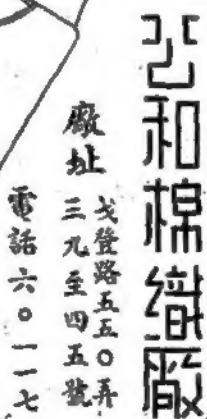 公和棉織廠
廠址
戈登路五五〇弄
三九至四五號
電話六〇一一七